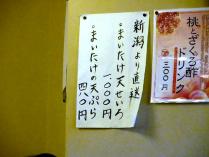 新潟より直送
・まいたけ天せいろ
一、〇〇〇円
・まいたけの天ぷら
四八〇円
桃とざくろ酢
ドリンク
三〇〇円